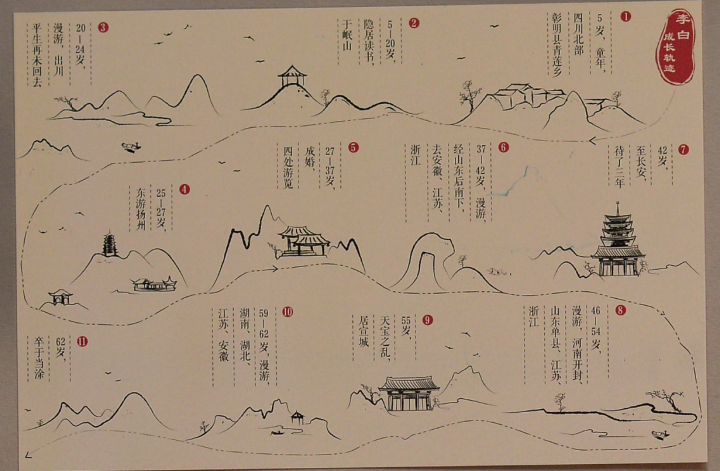 李白
成长轨迹
1
5岁，童年，
四川北部
彰明县青莲乡
2
5—20岁，
隐居读书，
于岷山
3
20—24岁，
漫游，出川
平生再未回去
4
25—27岁，
东游扬州
5
27—37岁，
成婚，
四处游览
6
37—42岁，漫游，
经山东后南下，
去安徽、江苏、
浙江
7
42岁，
至长安，
待了三年
8
46—54岁，
漫游，河南开封、
山东单县、江苏、
浙江
9
55岁，
天宝之乱，
居宣城
10
59—62岁，漫游，
湖南、湖北、
江苏、安徽
11
62岁，
卒于当涂